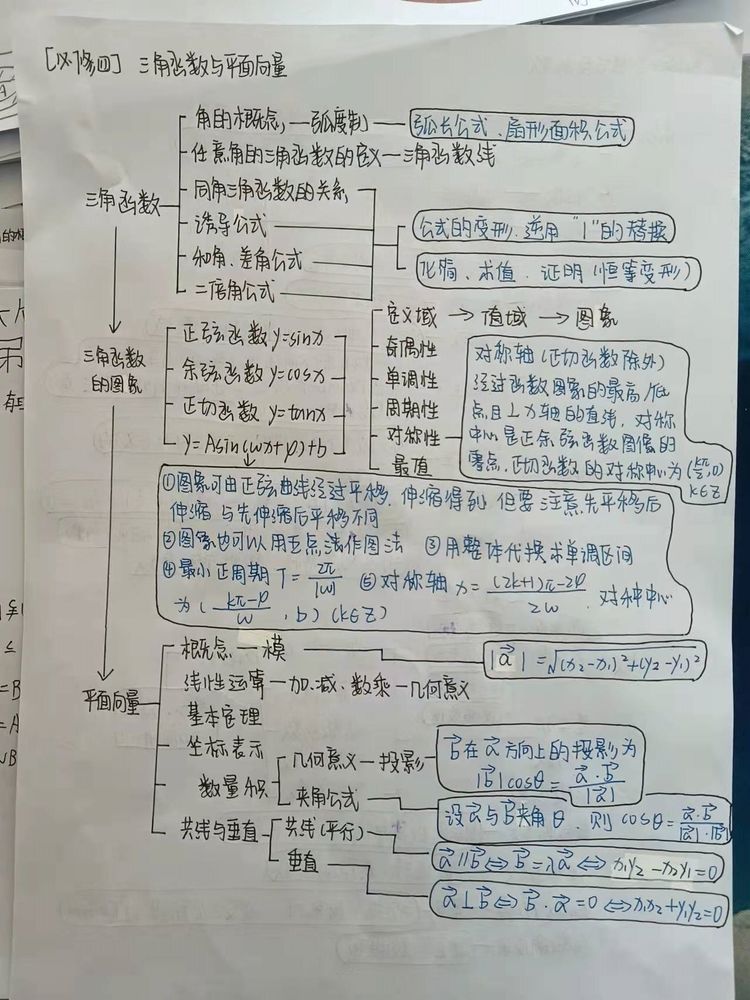 [必修四] 三角函数与平面向量
三角函数
角的概念,—弧度制—弧长公式、扇形面积公式
任意角的三角函数的定义—三角函数线
同角三角函数的关系
诱导公式
和角、差角公式
二倍角公式
公式的变形.逆用“1”的替换
化简、求值、证明(恒等变形)
三角函数
的图象
正弦函数y=sinx
余弦函数y=cosx
正切函数y=tanx
y=Asin(ωx+φ)+b
定义域→值域→图象
奇偶性
单调性
周期性
对称性
最值
对称轴(正切函数除外)
经过函数图象的最高/低
点且⊥x轴的直线,对称
中心是正余弦函数图像的
零点,正切函数的对称中心为(kπ/2,0)
k∈Z
①图象可由正弦曲线经过平移、伸缩得到,但要注意先平移后
伸缩与先伸缩后平移不同
②图象也可以用五点法作图法 ③用整体代换求单调区间
④最小正周期T=2π/|ω| ⑤对称轴x=((2k+1)π-2φ)/2ω,对称中心
为((kπ-φ)/ω,b)(k∈Z)
平面向量
概念—模—|a⃗|=√(x₂-x₁)²+(y₂-y₁)²
线性运算—加、减、数乘—几何意义
基本定理
坐标表示
数量积
几何意义—投影
b⃗在a⃗方向上的投影为
|b⃗|cosθ=a⃗·b⃗/|a⃗|
夹角公式
设a⃗与b⃗夹角θ,则cosθ=a⃗·b⃗/|a⃗|·|b⃗|
共线与垂直
共线(平行)
a⃗∥b⃗⇔b⃗=λa⃗⇔x₁y₂-x₂y₁=0
垂直
a⃗⊥b⃗⇔b⃗·a⃗=0⇔x₁x₂+y₁y₂=0